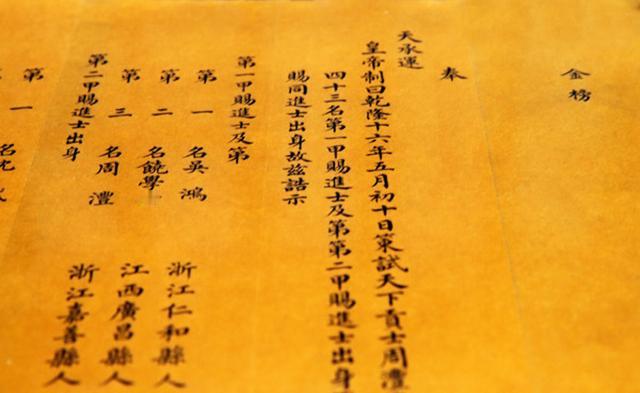 金榜
奉
天承運
皇帝制曰乾隆十六年五月初十日策試天下貢士周澧
四十三名第一甲賜進士及第第二甲賜進士出身
賜同進士出身故茲誥示
第一甲賜進士及第
第一名吳鴻 浙江仁和縣人
第二名饒學 江西廣昌縣人
第三名周澧 浙江嘉善縣人
第二甲賜進士出身
第一名沈